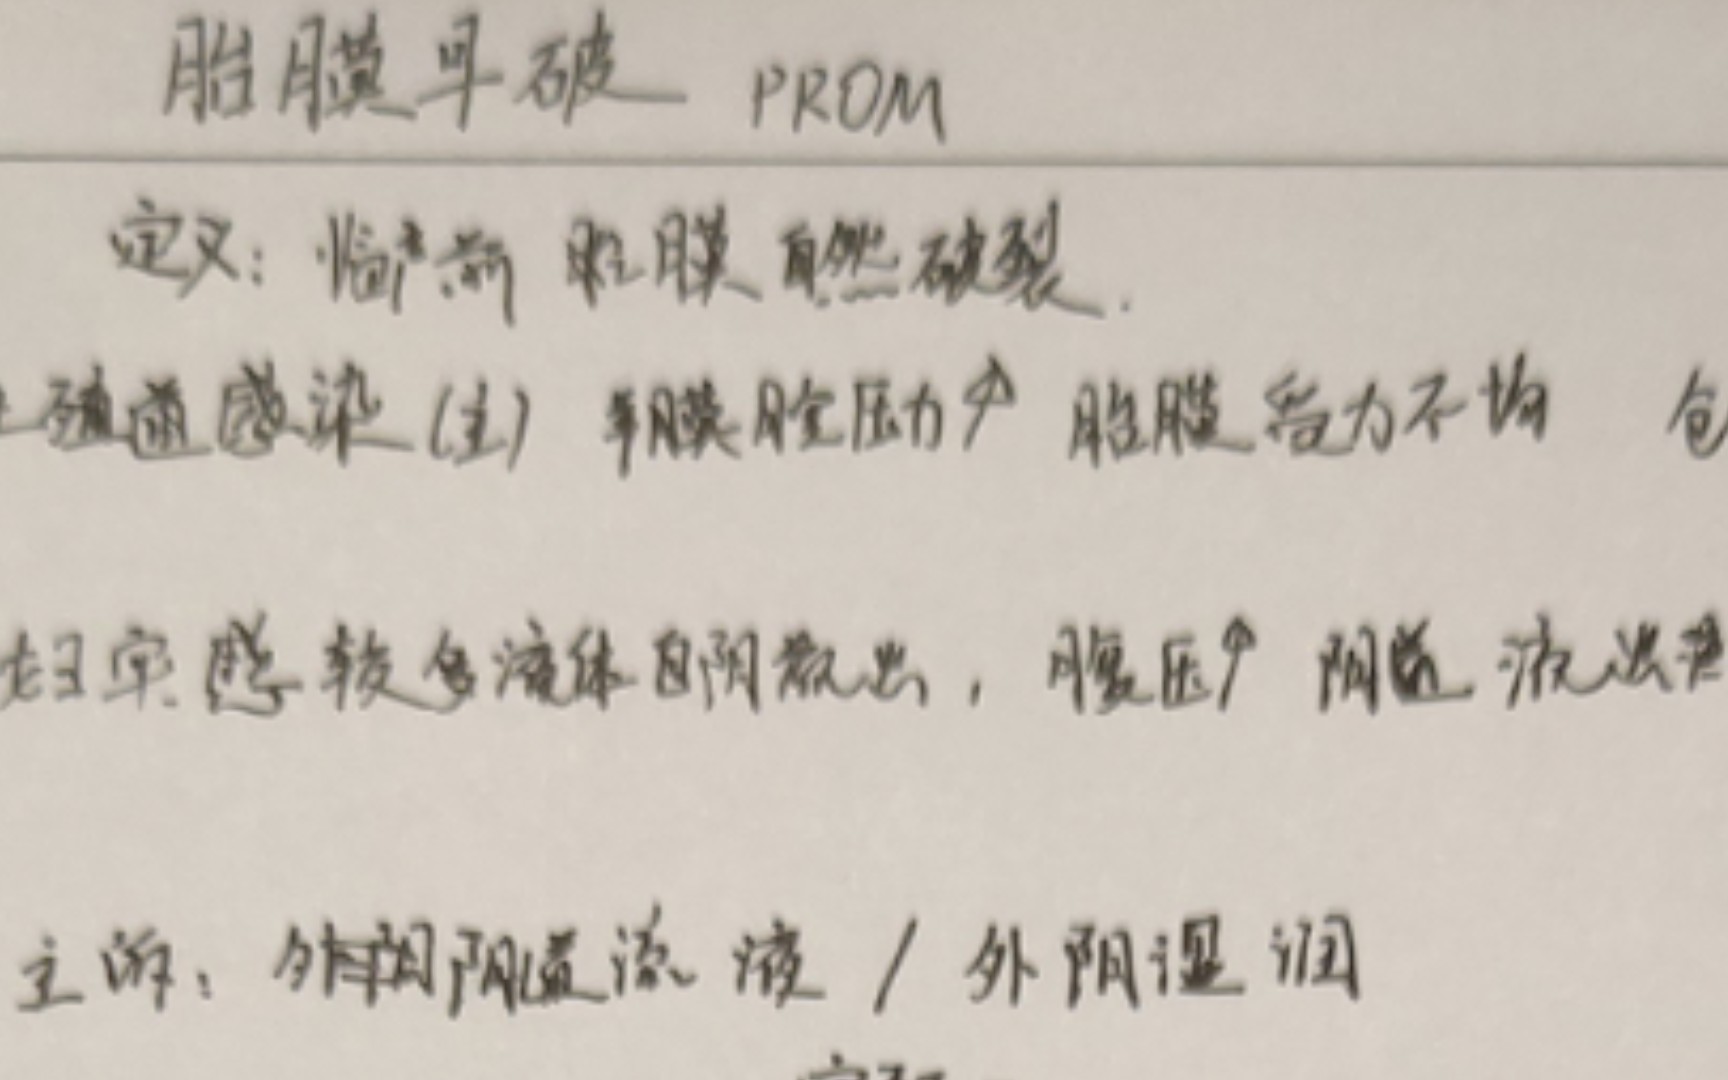 胎膜早破 PROM
定义：临产前 胎膜自然破裂.
生殖道感染(主) 羊膜腔压力↑ 胎膜受力不均
妇突感较多液体自阴流出，腹压↑ 阴道流出
主诉：突然阴道流液 / 外阴湿润